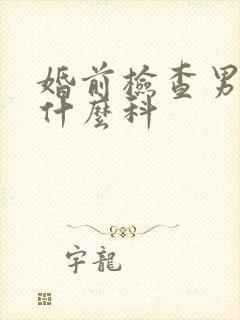 婚前檢查男
什麼科
宇龍